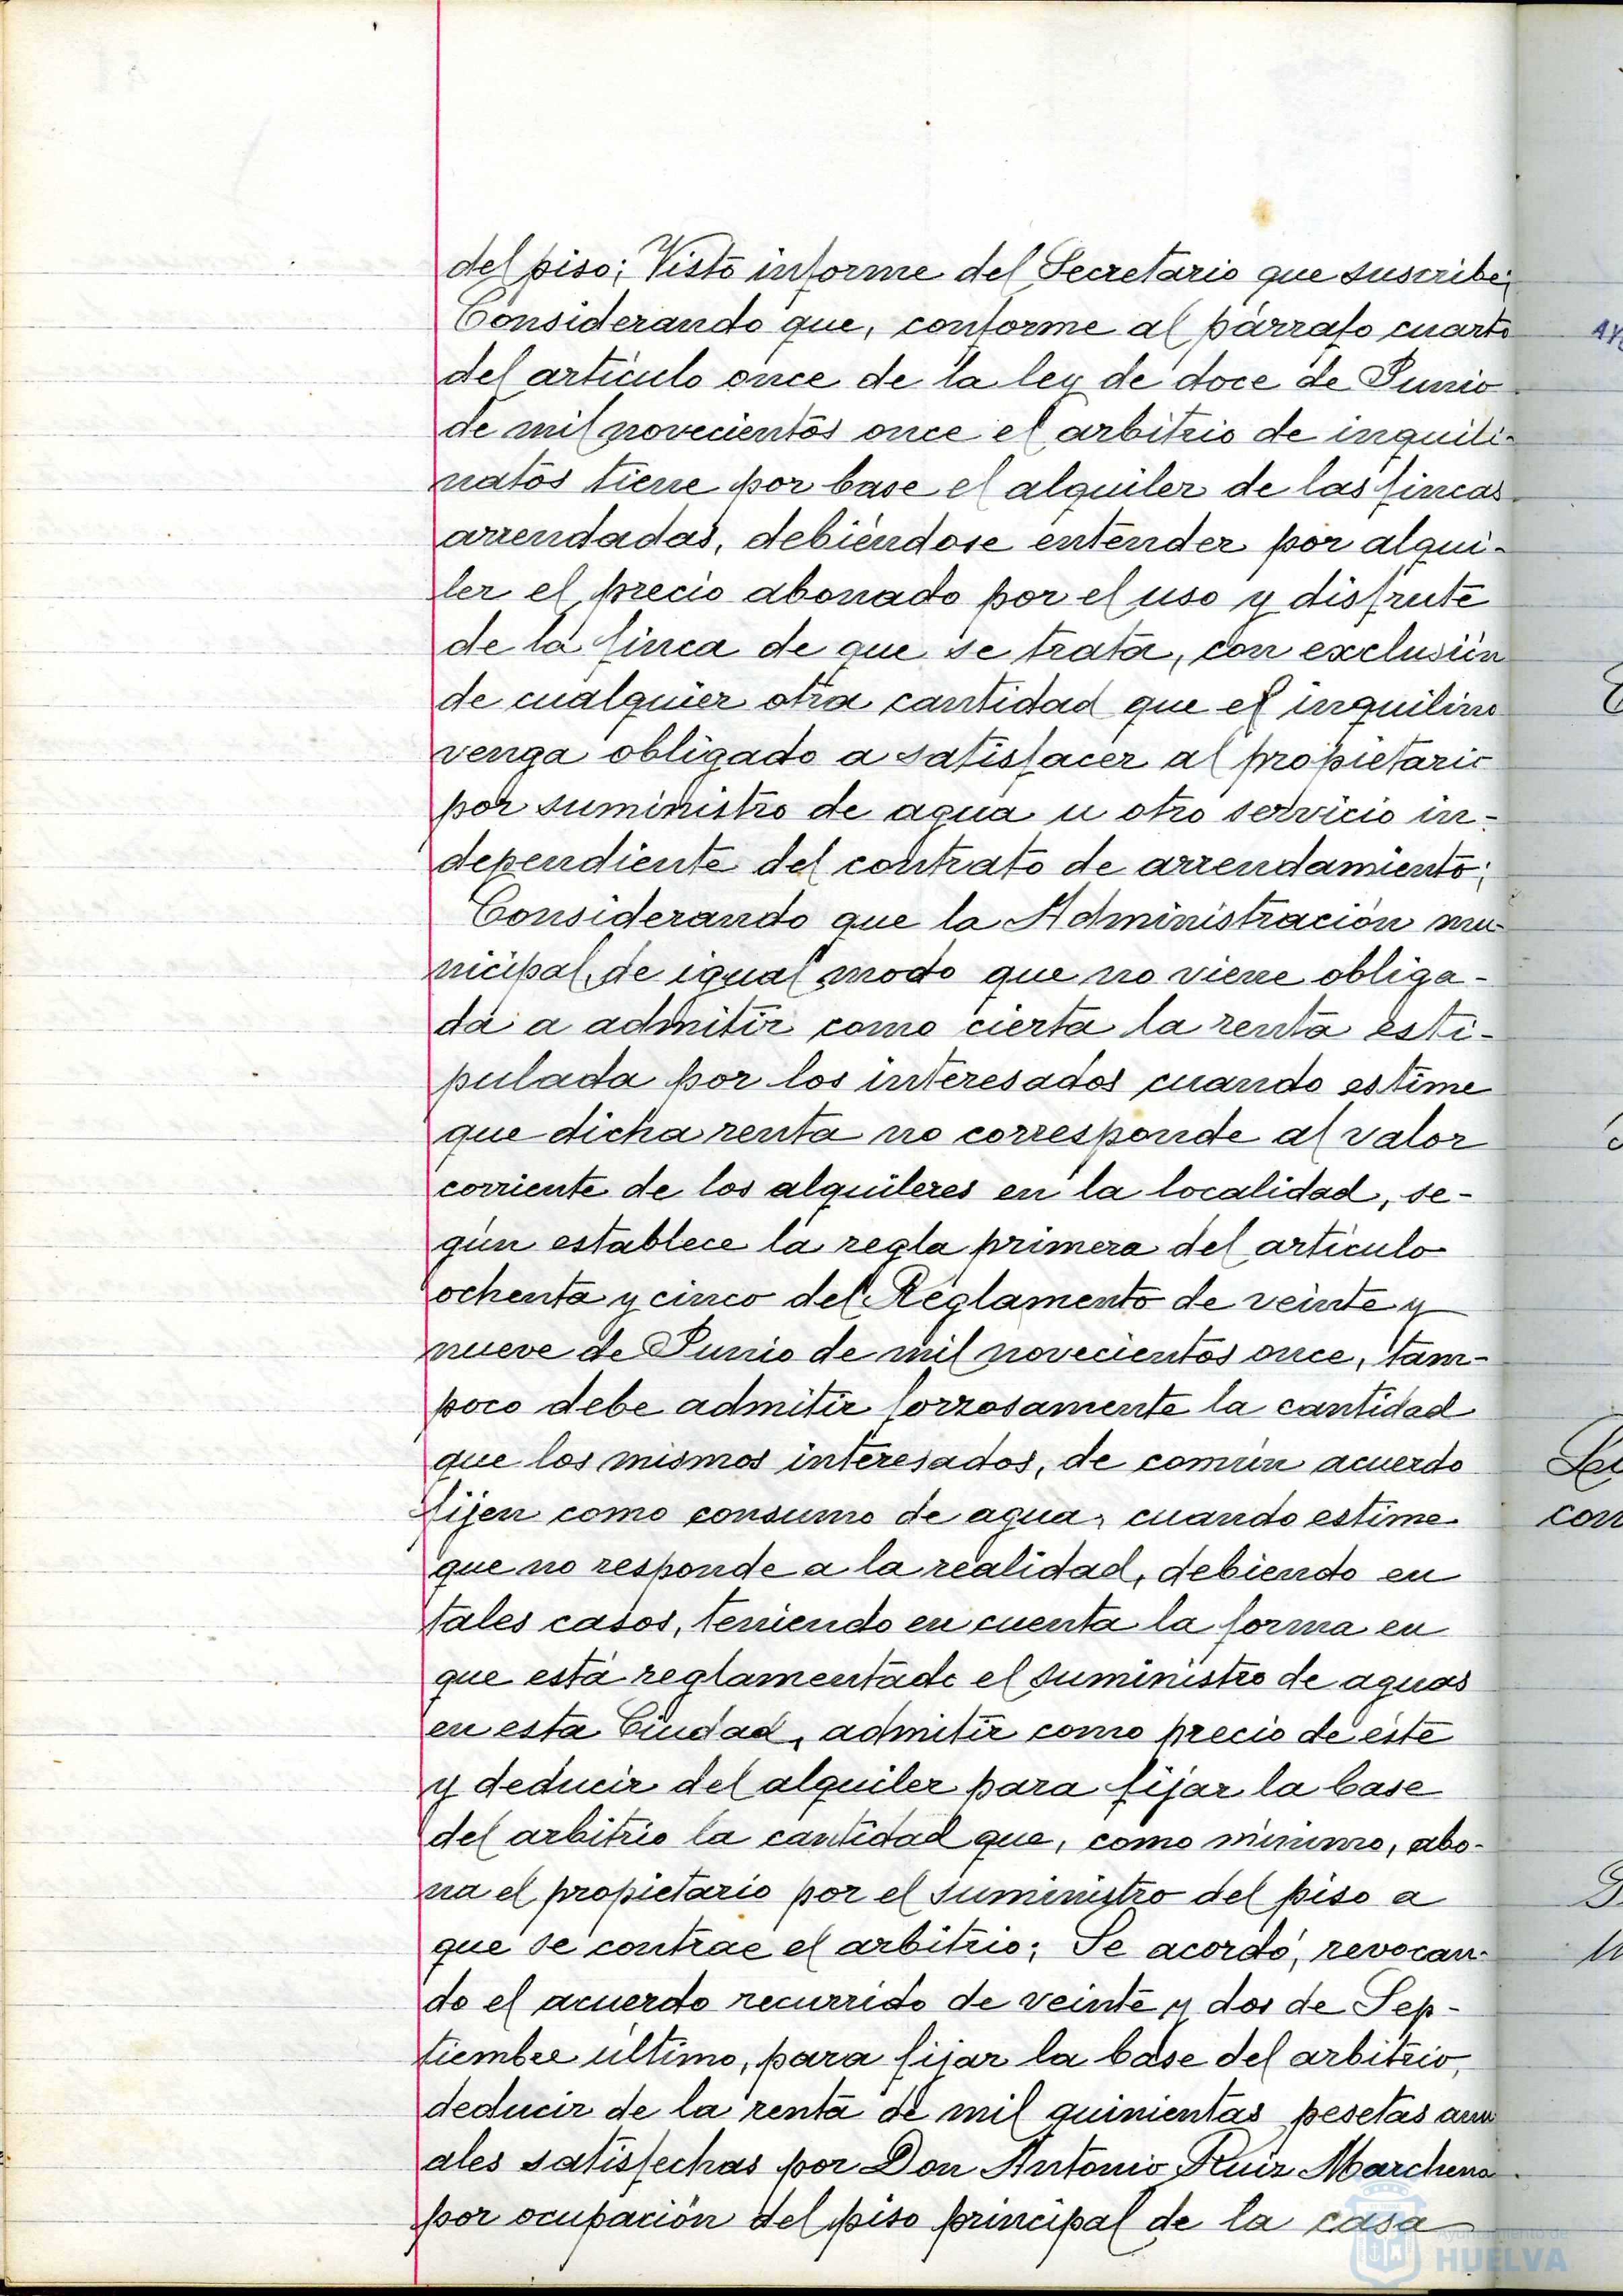 del piso; Visto informe del Secretario que suscribe;
Considerando que, conforme al párrafo cuarto
del artículo once de la ley de doce de Junio
de mil novecientos once el arbitrio de inquili-
natos tiene por base el alquiler de las fincas
arrendadas, debiéndose entender por alqui-
ler el precio abonado por el uso y disfrute
de la finca de que se trata, con exclusión
de cualquier otra cantidad que el inquilino
venga obligado a satisfacer al propietario
por suministro de agua u otro servicio in-
dependiente del contrato de arrendamiento;
Considerando que la Administración mu-
nicipal, de igual modo que no viene obliga-
da a admitir como cierta la renta esti-
pulada por los interesados cuando estime
que dicha renta no corresponde al valor
corriente de los alquileres en la localidad, se-
gún establece la regla primera del artículo
ochenta y cinco del Reglamento de veinte y
nueve de Junio de mil novecientos once, tam-
poco debe admitir forzosamente la cantidad
que los mismos interesados, de común acuerdo
fijen como consumo de agua, cuando estime
que no responde a la realidad, debiendo en
tales casos, teniendo en cuenta la forma en
que está reglamentado el suministro de aguas
en esta Ciudad, admitir como precio de éste
y deducir del alquiler para fijar la base
del arbitrio la cantidad que, como mínimo, abo-
na el propietario por el suministro del piso a
que se contrae el arbitrio; Se acordó, revocan-
do el acuerdo recurrido de veinte y dos de Sep-
tiembre último, para fijar la base del arbitrio,
deducir de la renta de mil quinientas pesetas anu
ales satisfechas por Don Antonio Ruiz Marchena
por ocupación del piso principal de la casa
Ayuntamiento de
HUELVA
con